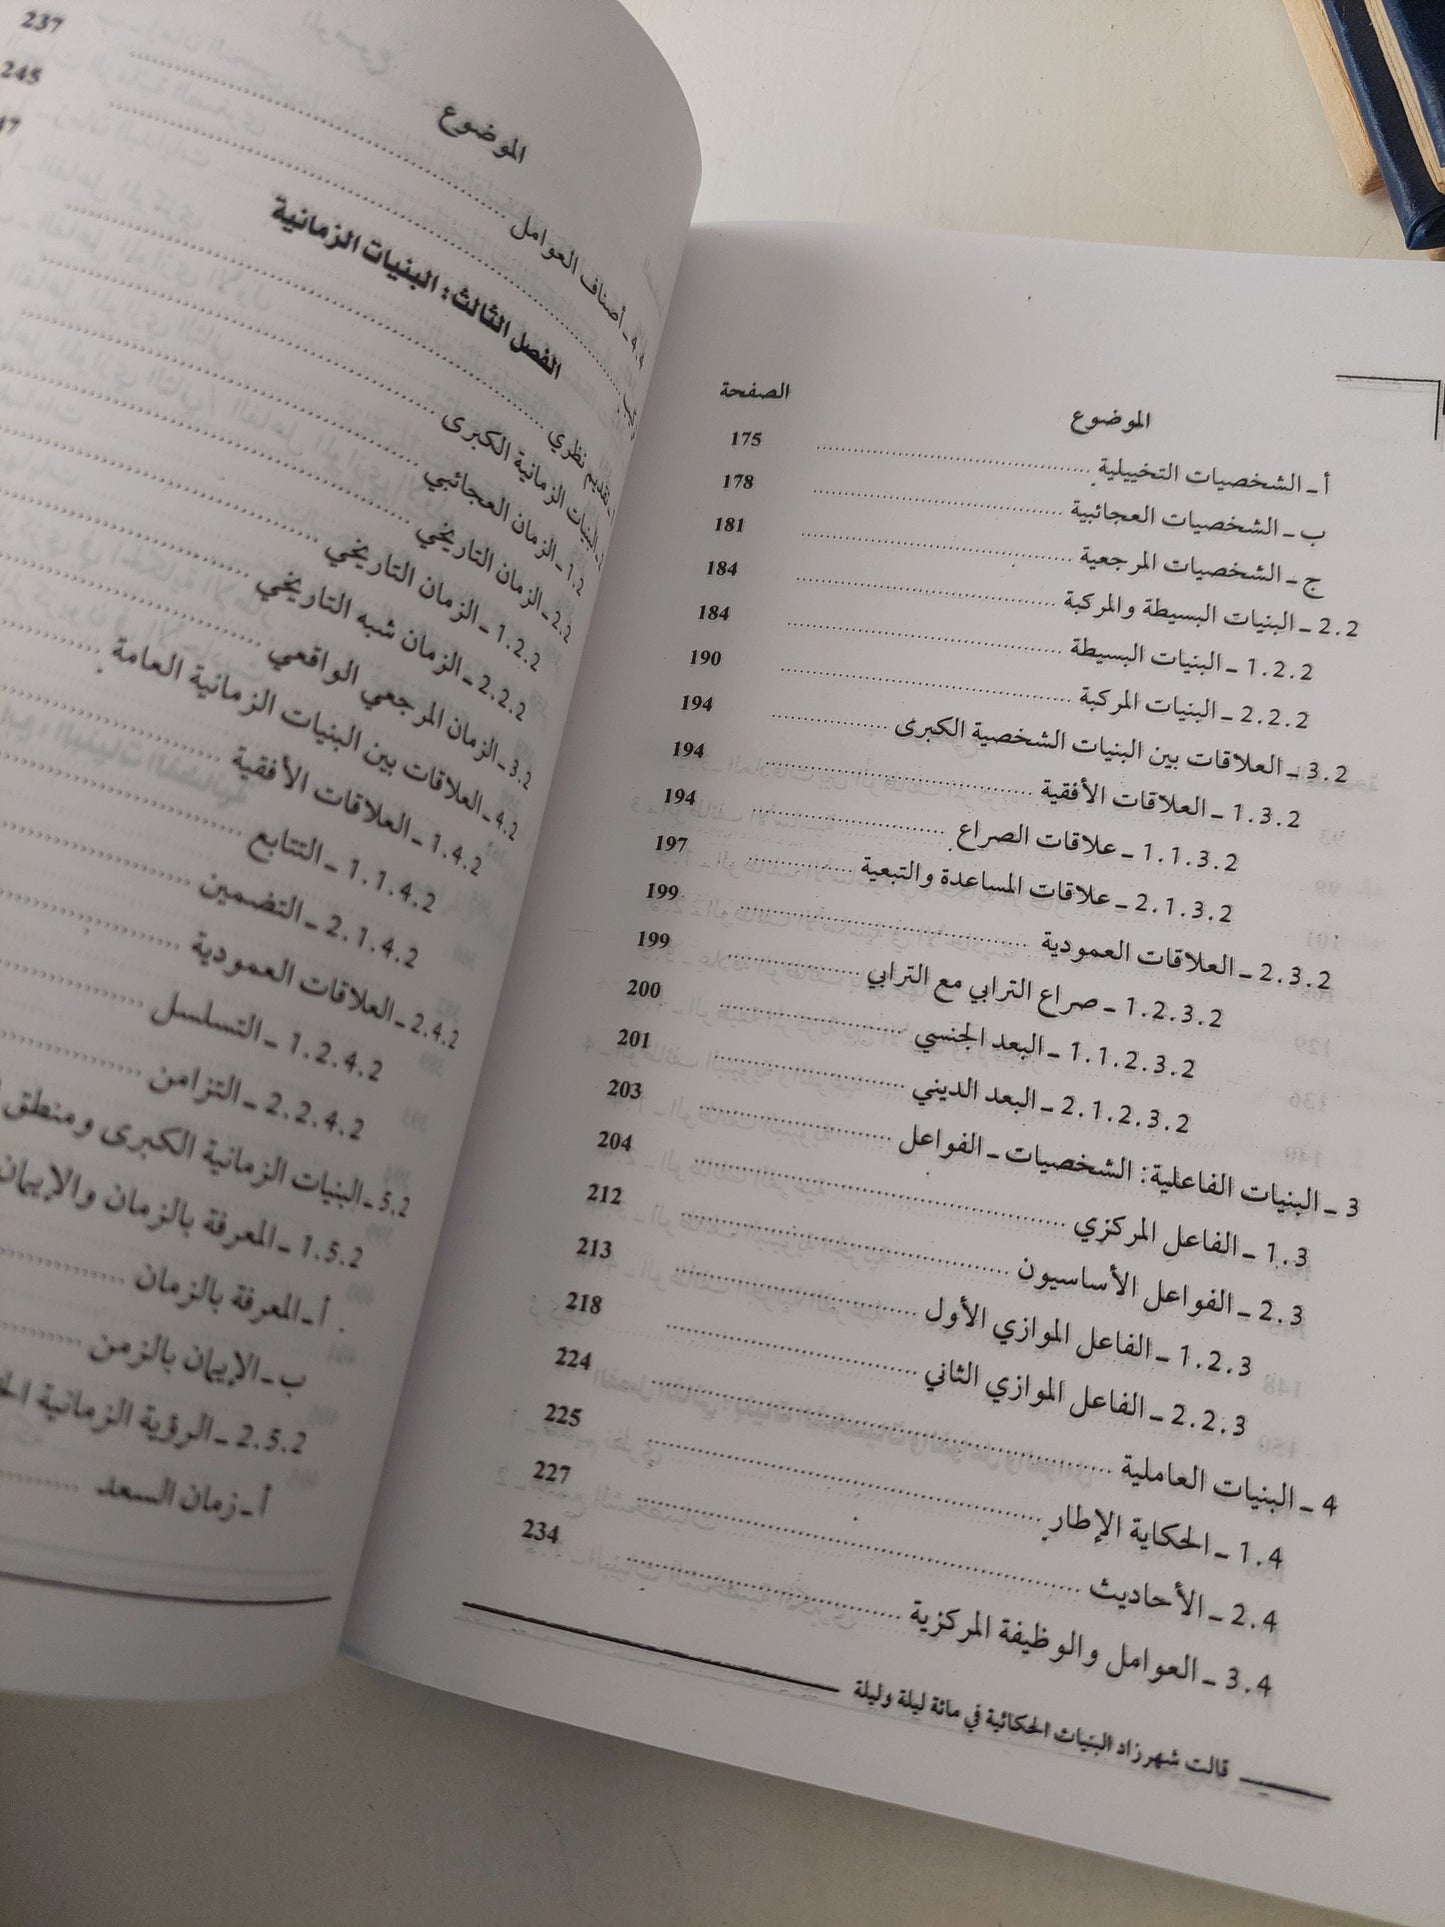 الموضوع الصفحة
أ ـ الشخصيات التخييلية 175
ب ـ الشخصيات العجائبية 178
ج ـ الشخصيات المرجعية 181
2.2 ـ البنيات البسيطة والمركبة 184
1.2.2 ـ البنيات البسيطة 184
2.2.2 ـ البنيات المركبة 190
3.2 ـ العلاقات بين البنيات الشخصية الكبرى 194
1.3.2 ـ العلاقات الأفقية 194
1.1.3.2 ـ علاقات الصراع 194
2.1.3.2 ـ علاقات المساعدة والتبعية 197
2.3.2 ـ العلاقات العمودية 199
1.2.3.2 ـ صراع الترابي مع الترابي 199
1.1.2.3.2 ـ البعد الجنسي 200
2.1.2.3.2 ـ البعد الديني 201
3 ـ البنيات الفاعلية: الشخصيات ـ الفواعل 203
1.3 ـ الفاعل المركزي 204
2.3 ـ الفواعل الأساسيون 212
1.2.3 ـ الفاعل الموازي الأول 213
2.2.3 ـ الفاعل الموازي الثاني 218
4 ـ البنيات العاملية 224
1.4 ـ الحكاية الإطار 225
2.4 ـ الأحاديث 227
3.4 ـ العوامل والوظيفة المركزية 234
قالت شهرزاد البنيات الحكائية في مائة ليلة وليلة
الموضوع
4.4 ـ أصناف العوامل 237
245
الفصل الثالث: البنيات الزمانية
تقديم نظري
البنيات الزمانية الكبرى
1.2 ـ الزمان العجائبي
2.2 ـ الزمان التاريخي
1.2.2 ـ الزمان التاريخي
2.2.2 ـ الزمان شبه التاريخي
3.2 ـ الزمان المرجعي الواقعي
4.2 ـ العلاقات بين البنيات الزمانية العامة
1.4.2 ـ العلاقات الأفقية
1.1.4.2 ـ التتابع
2.1.4.2 ـ التضمين
2.4.2 ـ العلاقات العمودية
1.2.4.2 ـ التسلسل
2.2.4.2 ـ التزامن
5.2 ـ البنيات الزمانية الكبرى ومنطق
1.5.2 ـ المعرفة بالزمان والإيمان
أ ـ المعرفة بالزمان
ب ـ الإيمان بالزمن
2.5.2 ـ الرؤية الزمانية
أ ـ زمان السعد